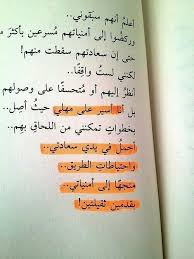 اعلمُ أنهم سبقوني..
وركضُوا إلى أمنياتهم مُسرعين بأكثرَ
حتى إن سعادتهم سقطت منهم!
لكنني لستُ واقفًا..
أنظرُ إليهم أو مُتحسفًا على وصولهم
بل أنا أسير على مهلي حيثُ أصِل..
بخطواتٍ تمكنني من اللحاقِ بهم..
أحملُ في يدي سعادتي..
واحتياطاتِ الطريق..
متجهًا إلى أمنياتي..
بقدمين ثقيلتين!